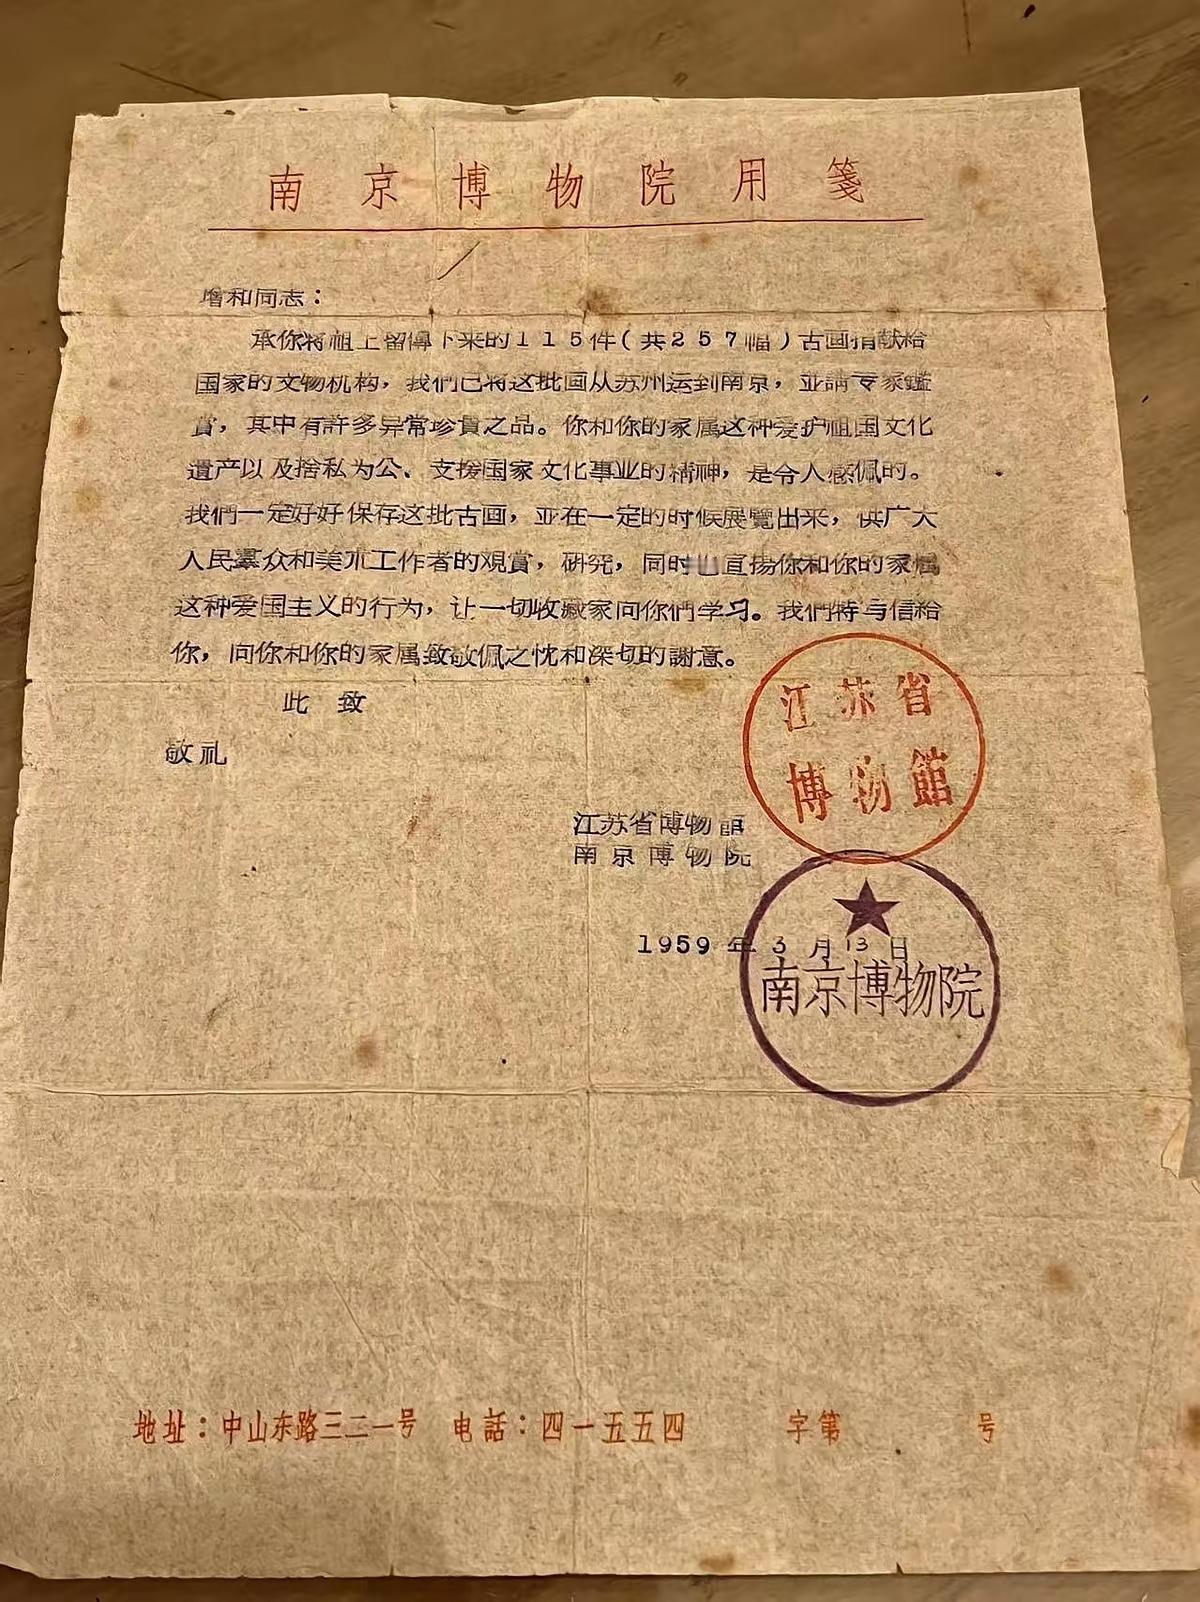 南京博物院用箋
增和同志：
承你将祖上留傳下来的115件(共257幅)古画捐献给
国家的文物机构，我們已将这批画从苏州运到南京，並請专家鑑
賞，其中有許多异常珍貴之品。你和你的家属这种爱护祖国文化
遺产以及捨私为公、支援国家文化事业的精神，是令人感佩的。
我們一定好好保存这批古画，並在一定的时候展覽出来，供广大
人民羣众和美朮工作者的观赏，研究，同时也宣扬你和你的家属
这种爱国主义的行为，让一切收藏家向你們学习。我們特写信給
你，向你和你的家属致敬佩之忱和深切的謝意。
此致
敬礼
江苏省
博物館
江苏省博物館
南京博物院
1959年3月13日
南京博物院
地址：中山东路三二一号 电話：四一五五四 字第 号